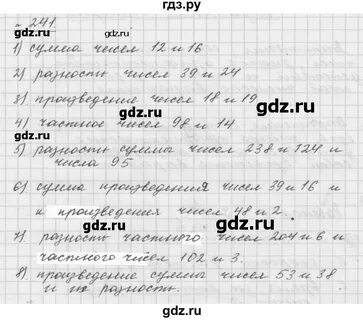 гдз.ру
№ 241.
1) сумма чисел 12 и 16
2) разность чисел 39 и 24
3) произведение чисел 18 и 19
4) частное чисел 98 и 14
5) разность суммы чисел 238 и 124 и
числа 95
6) сумма произведения чисел 39 и 16 и
и произведения чисел 48 и 2.
7) разность частного чисел 204 и 6 и
частного чисел 102 и 3.
8) произведение суммы чисел 53 и 38
и их разность.
gdz.ru
gdz.ru
gdz.ru
gdz.ru
gdz.ru
gdz.ru
gdz.ru
gdz.ru